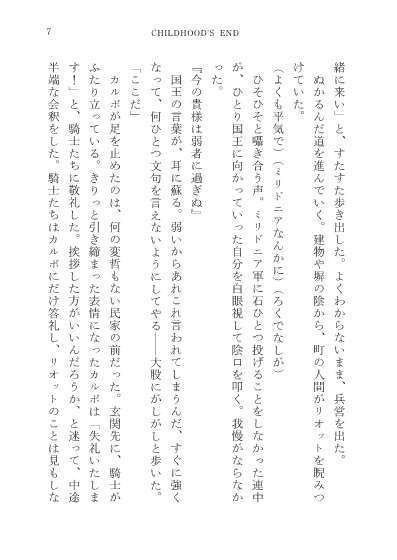 7
CHILDHOOD'S END
緒に来い」と、すたすた歩き出した。よくわからないまま、兵営を出た。
ぬかるんだ道を進んでいく。建物や塀の陰から、町の人間がリオットを睨みつ
けていた。
(よくも平気で)(ミリドニアなんかに)(ろくでなしが)
ひそひそと囁き合う声。ミリドニア軍に石ひとつ投げることをしなかった連中
が、ひとり国王に向かっていった自分を白眼視して陰口を叩く。我慢がならなか
った。
『今の貴様は弱者に過ぎぬ』
国王の言葉が、耳に蘇る。弱いからあれこれ言われてしまうんだ、すぐに強く
なって、何ひとつ文句を言えないようにしてやる――大股にがしがしと歩いた。
「ここだ」
カルボが足を止めたのは、何の変哲もない民家の前だった。玄関先に、騎士が
ふたり立っている。きりっと引き締まった表情になったカルボは「失礼いたしま
す!」と、騎士たちに敬礼した。挨拶した方がいいんだろうか、と迷って、中途
半端な会釈をした。騎士たちはカルボにだけ答礼し、リオットのことは見もしな